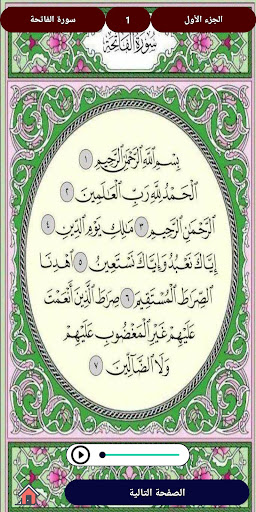 الجزء الأول
1
سورة الفاتحة
سُورَةُ الْفَاتِحَةِ
بِسْمِ اللَّهِ الرَّحْمَٰنِ الرَّحِيمِ ١
الْحَمْدُ لِلَّهِ رَبِّ الْعَالَمِينَ ٢
الرَّحْمَٰنِ الرَّحِيمِ ٣ مَالِكِ يَوْمِ الدِّينِ ٤
إِيَّاكَ نَعْبُدُ وَإِيَّاكَ نَسْتَعِينُ ٥ اهْدِنَا
الصِّرَاطَ الْمُسْتَقِيمَ ٦ صِرَاطَ الَّذِينَ أَنْعَمْتَ
عَلَيْهِمْ غَيْرِ الْمَغْضُوبِ عَلَيْهِمْ
وَلَا الضَّالِّينَ ٧
الصفحة التالية